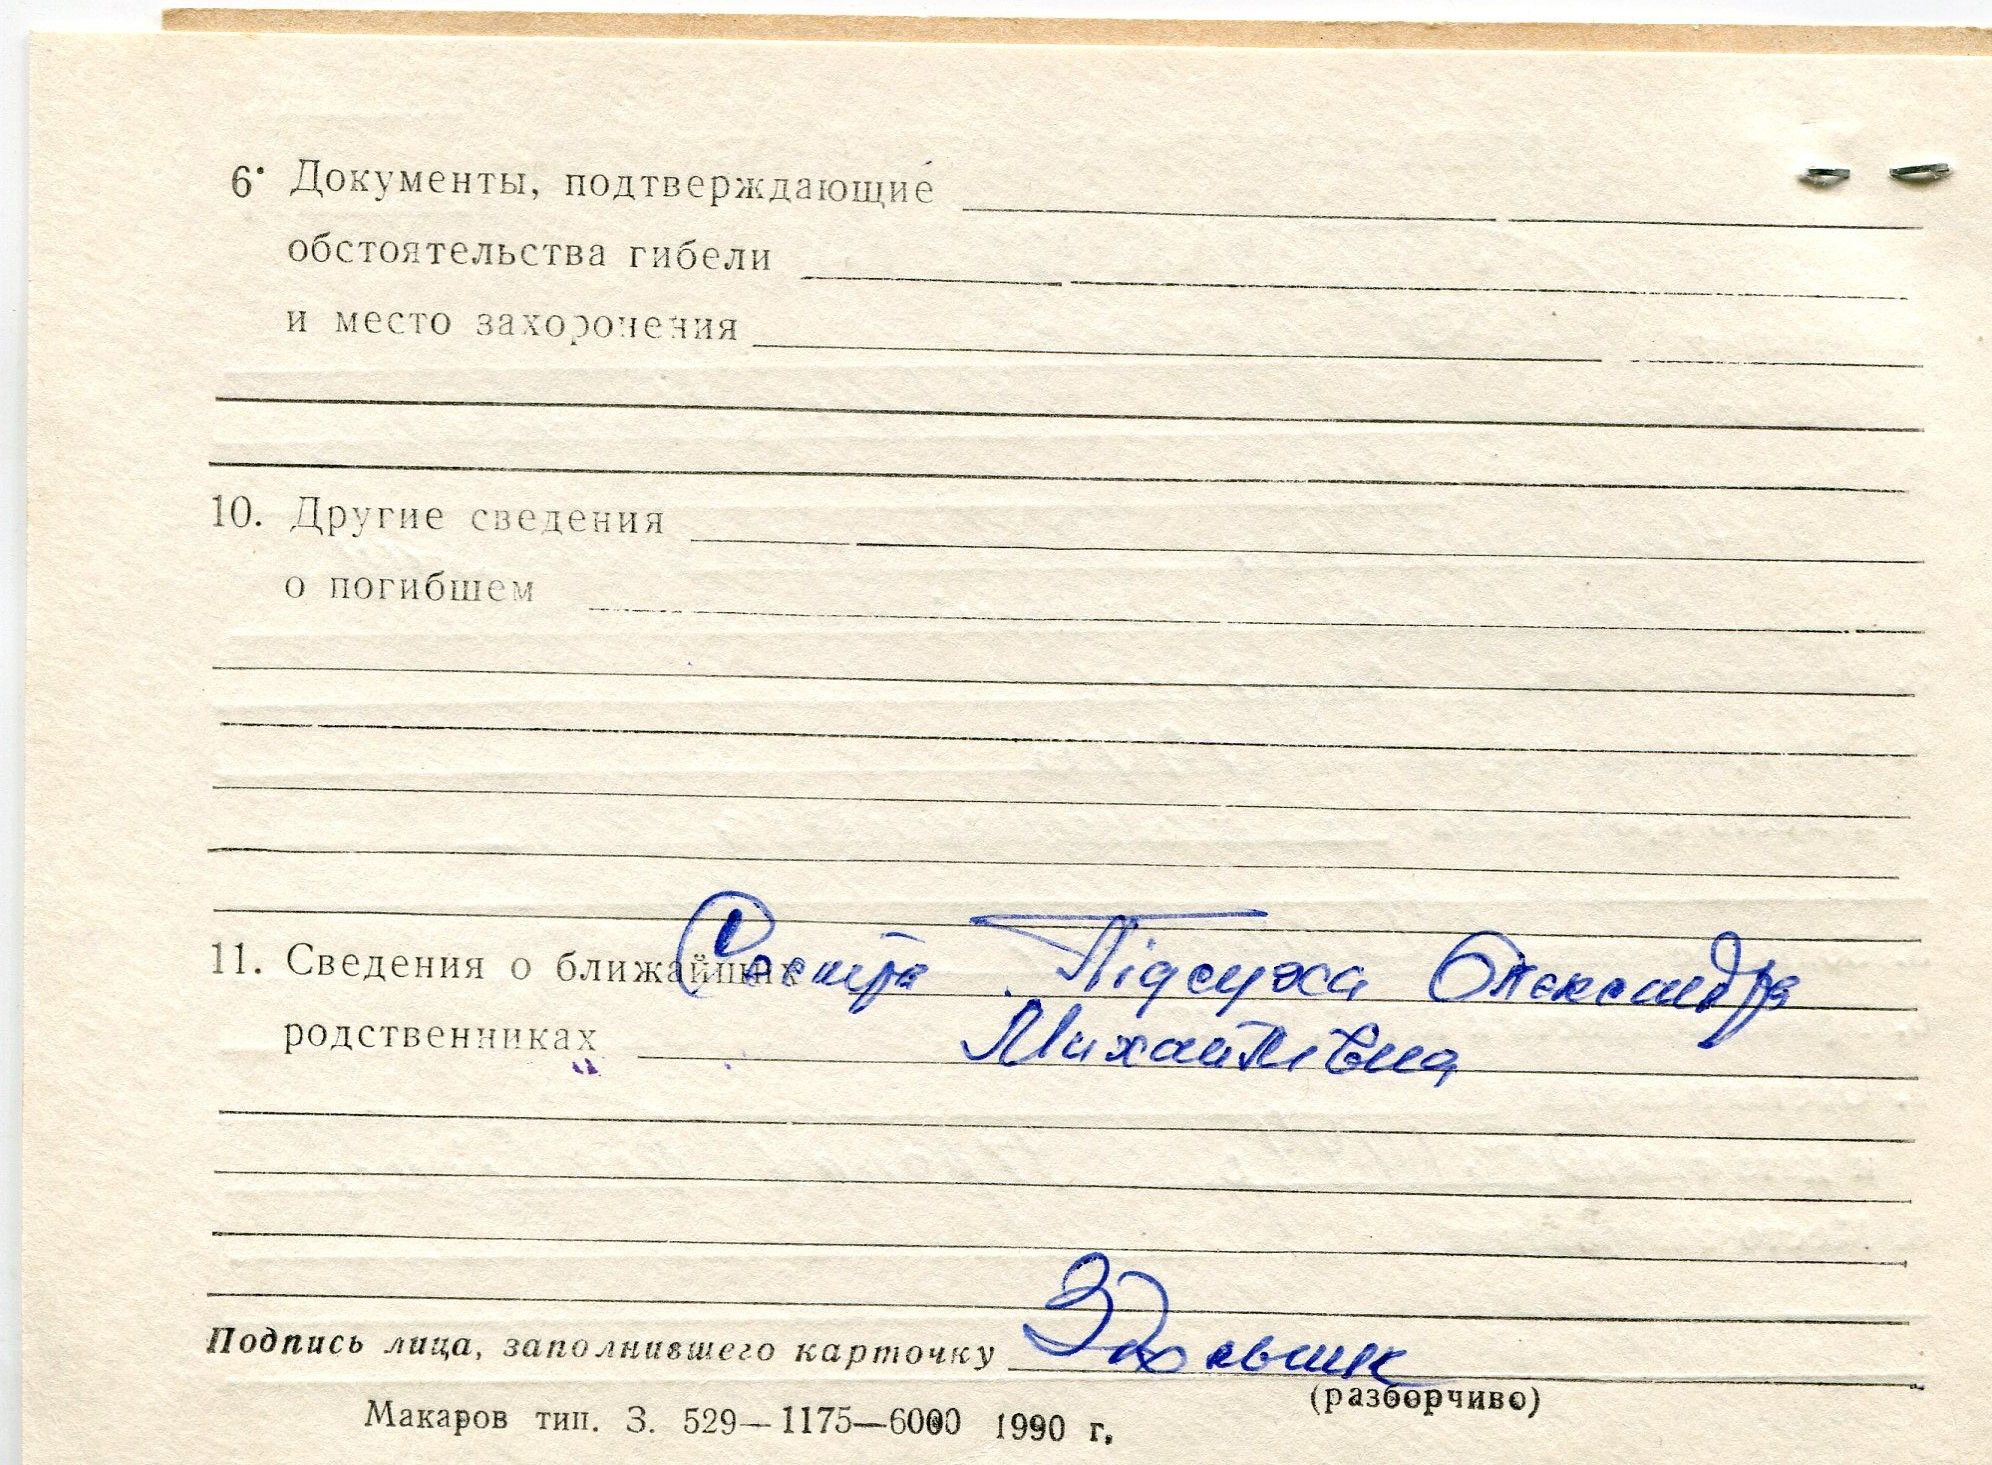 6. Документы, подтверждающие
обстоятельства гибели
и место захоронения
10. Другие сведения
о погибшем
11. Сведения о ближайших Сестра Підсуха Олександра
родственниках Михайлівна
Подпись лица, заполнившего карточку
(разборчиво)
Макаров тип. З. 529—1175—6000 1990 г.